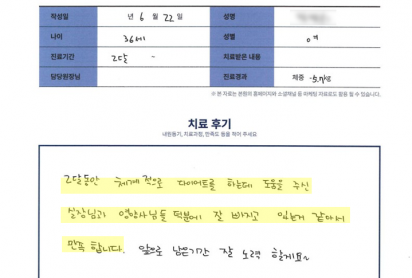 작성일 년 6 월 22 일 성명
나이 36세 성별 여
진료기간 2달 - 치료받은 내용
담당원장님 진료경과 체중 -5.7kg
※ 본 자료는 본원의 홈페이지와 소셜채널 등 마케팅 자료로도 활용 될 수 있습니다.
치료 후기
내원동기, 치료과정, 만족도 등을 적어 주세요
2달동안 체계적으로 다이어트를 하는데 도움을 주신
실장님과 영양사님들 덕분에 잘 빠지고 있는거 같아서
만족 합니다. 앞으로 남은기간 잘 노력 할게요~